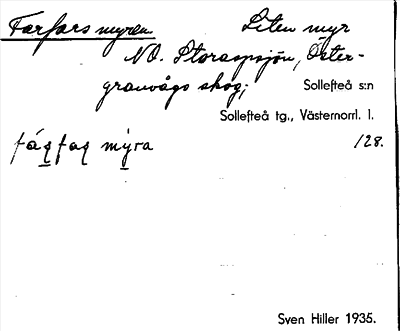 Farfars myren Liten myr
NO. Storaspsjön, Öster-
granvågs skog; Sollefteå s:n
Sollefteå tg., Västernorrl. l.
fáq̱faq mý̱ra 128.
Sven Hiller 1935.